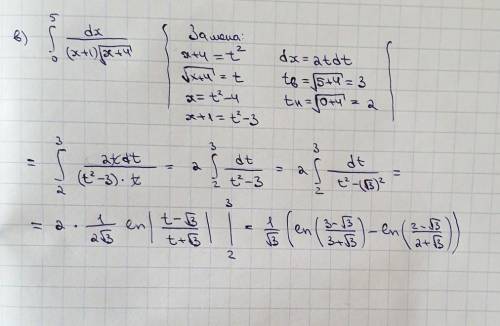 в) ∫₀⁵ dx / ((x+1)√(x+4)) | Замена:
x+4 = t²   dx = 2tdt
√(x+4) = t   tв = √(5+4) = 3
x = t²-4   tн = √(0+4) = 2
x+1 = t²-3
= ∫₂³ 2tdt / ((t²-3)·t) = 2 ∫₂³ dt / (t²-3) = 2 ∫₂³ dt / (t²-(√3)²) =
= 2 · 1/(2√3) ln| (t-√3)/(t+√3) | |₂³ = 1/√3 (ln((3-√3)/(3+√3)) - ln((2-√3)/(2+√3)))